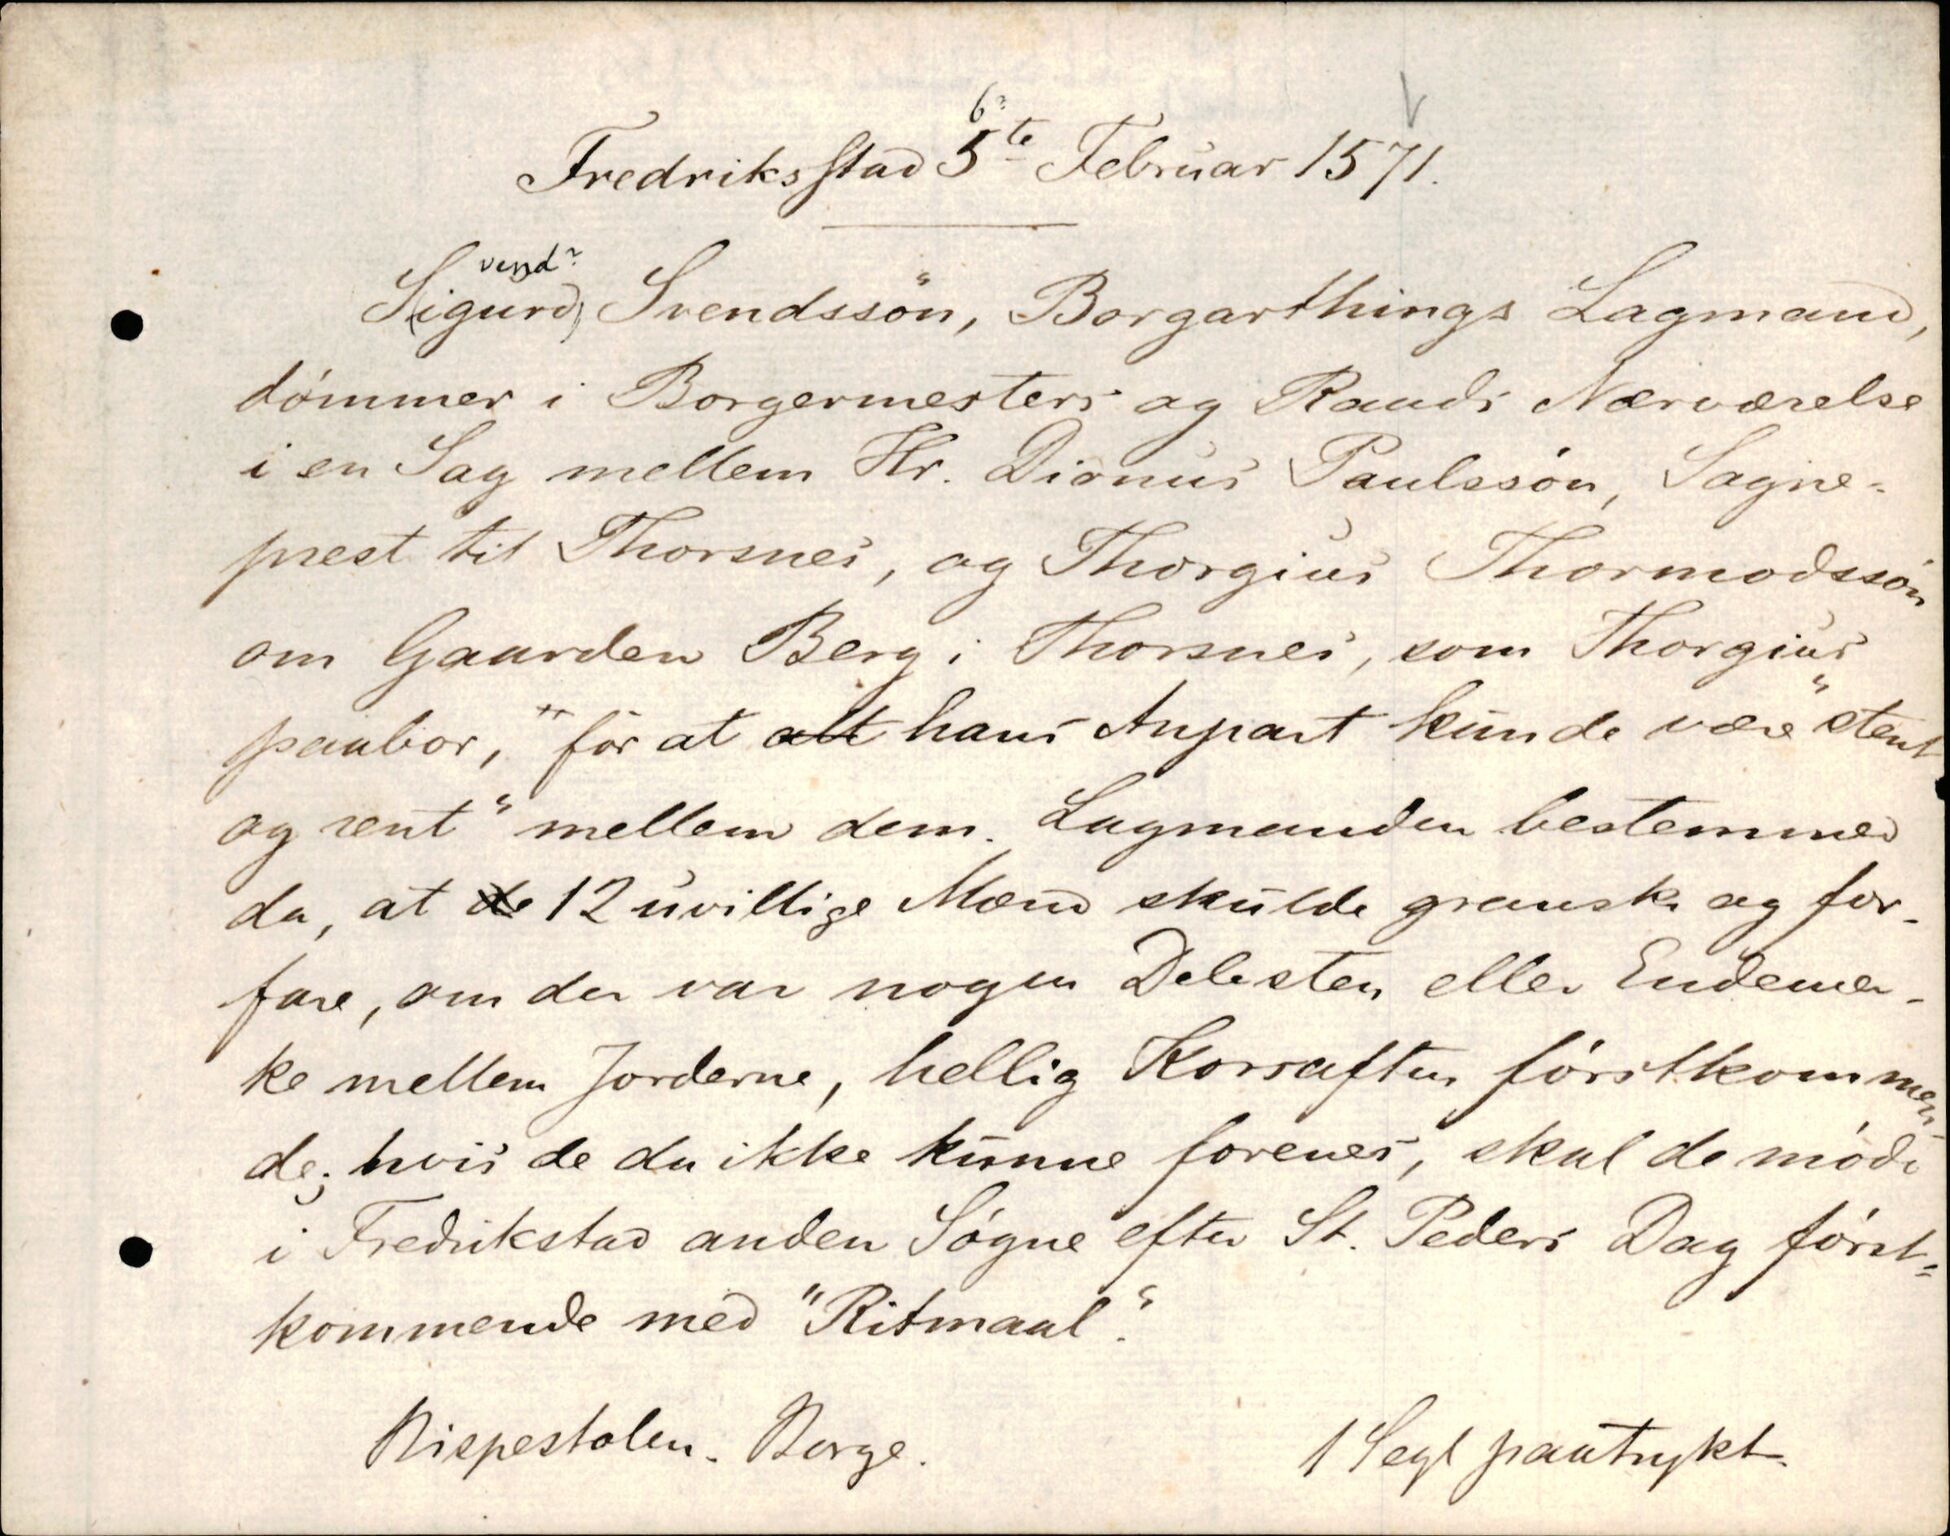 Fredriksstad 5te Februar 1571.
6?
vend?
S(igurd) Svendssön, Borgarthings Lagmand,
dömmer i Borgermesters og Raads Nærværelse
i en Sag mellem Hr. Dionus Paulssön, Sogne-
prest til Thorsnes, og Thorgius Thormodssön
om Gaarden Berg i Thorsnes, som Thorgius
paabor, "för at alt hans Anpart kunde være "stent
og rent" mellem dem. Lagmanden bestemmer
da, at de 12 uvillige Mænd skulde granske og for-
fare, om der var nogen Delesten eller Endemer-
ke mellem Jorderne, hellig Korsaften förstkommen-
de; hvis de da ikke kunne forenes, skal de möde
i Fredrikstad anden Sögne efter St. Peders Dag först-
kommende med "Ritmaal".
Bispestolen. Borge.
1 Segl paatrykt.